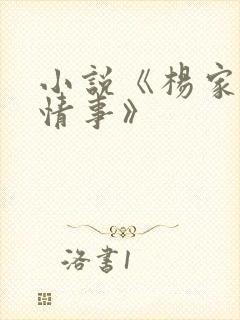 小説《楊家
情事》
洛書1